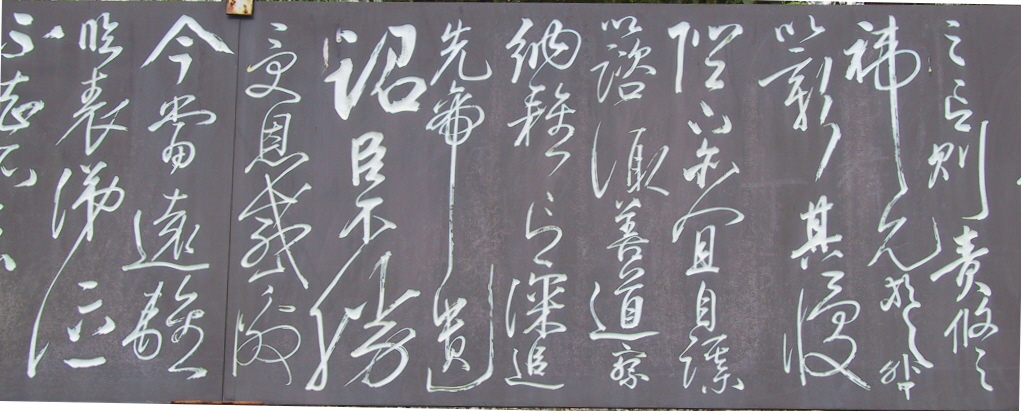 之言則責攸之
禕允等咎
以彰其慢
陛下亦宜自謀
以諮諏善道察
納雅言深追
先帝遺
詔臣不勝
受恩感激
今當遠離
臨表涕泣
不知所云